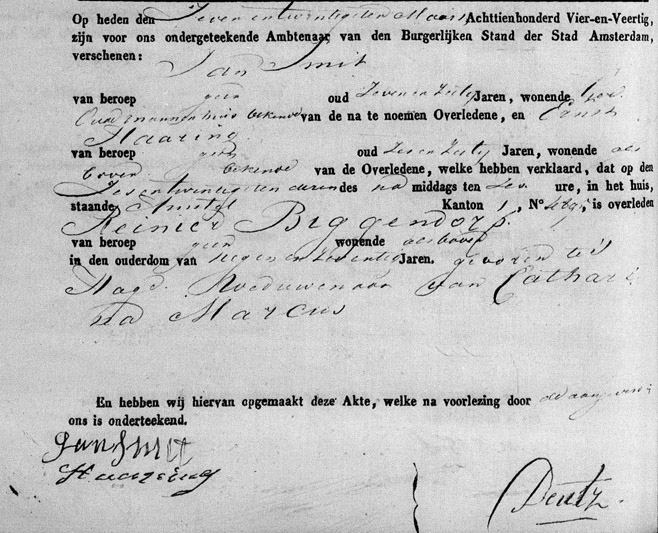 Op heden den Zeven entwintigsten Maart Achttienhonderd Vier-en-Veertig,
zijn voor ons ondergeteekende Ambtenaar van den Burgerlijken Stand der Stad Amsterdam,
verschenen:
Jan Smit
van beroep geen oud Zeven en Zestig Jaren, wonende
Oude mannen huis bekende van de na te noemen Overledene, en Ernst
Haaring
van beroep geen oud Zes en Zestig Jaren, wonende als
boven bekende van de Overledene, welke hebben verklaard, dat op den
Zes entwintigsten dezer des na middags ten Zes ure, in het huis,
staande Amstel Kanton 1, N° is overleden
Reinier Biggendorp
van beroep geen wonende als boven
in den ouderdom van Negen en Zeventig Jaren. geboren te
Weduwenaar van Cathari
na Marcus
En hebben wij hiervan opgemaakt deze Akte, welke na voorlezing door de aangevers
ons is onderteekend.
Jan Smit
Haazring
Deutz.